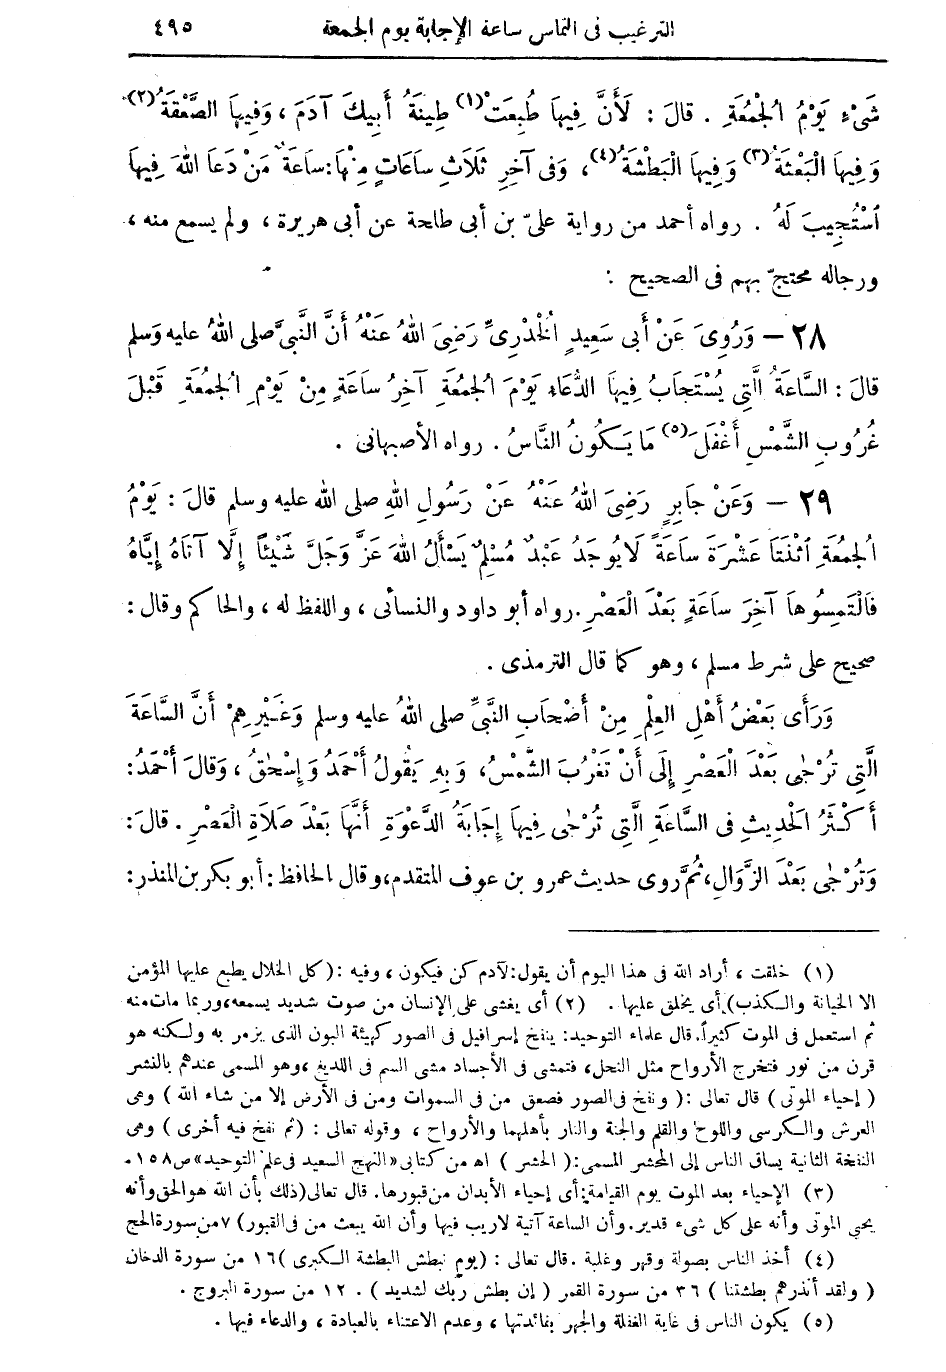 الترغيب فى التماس ساعة الإجابة يوم الجمعة ٤٩٥
شَىْءٍ يَوْمُ الْجُمُعَةِ . قالَ : لِأَنَّ فِيهَا طُبِعَتْ (١) طِينَةُ أَبِيكَ آدَمَ ، وَفِيهَا الصَّعْقَةُ (٢)
وَفِيهَا الْبَعْثَةُ (٣) وَفِيهَا الْبَطْشَةُ (٤) ، وَفى آخِرِ ثَلَاثِ سَاعَاتٍ مِنْهَا: سَاعَةٌ مَنْ دَعَا اللهَ فِيهَا
اسْتُجِيبَ لَهُ . رواه أحمد من رواية علىّ بن أبى طلحة عن أبى هريرة ، ولم يسمع منه ،
ورجاله محتجّ بهم فى الصحيح :
٢٨ – وَرُوِىَ عَنْ أَبى سَعِيدٍ الْخُدْرِىِّ رَضِىَ اللهُ عَنْهُ أَنَّ النَّبِىَّ صلى اللهُ عليه وَسلم
قالَ : السَّاعَةُ الَّتِى يُسْتَجَابُ فِيهَا الدُّعَاءُ يَوْمَ الْجُمُعَةِ آخِرُ سَاعَةٍ مِنْ يَوْمِ الْجُمُعَةِ قَبْلَ
غُرُوبِ الشَّمْسِ أَغْفَلَ (٥) مَا يَكُونُ النَّاسُ . رواه الأصبهانى .
٢٩ – وَعَنْ جَابِرٍ رَضِىَ اللهُ عَنْهُ عَنْ رَسُولِ اللهِ صلى الله عليه وسلم قالَ : يَوْمُ
الْجُمُعَةِ اثْنَتَا عَشْرَةَ سَاعَةً لَايُوجَدُ عَبْدٌ مُسْلِمٌ يَسْأَلُ اللهَ عَزَّ وَجَلَّ شَيْئاً إِلَّا آتَاهُ إِيَّاهُ
فَالْتَمِسُوهَا آخِرَ سَاعَةٍ بَعْدَ الْعَصْرِ . رواه أبو داود والنسائى ، واللفظ له ، والحاكم وقال :
صحيح على شرط مسلم ، وهو كما قال الترمذى .
وَرَأَى بَعْضُ أَهْلِ الْعِلْمِ مِنْ أَصْحَابِ النَّبِىِّ صلى اللهُ عليه وسلم وَغَيْرِهِمْ أَنَّ السَّاعَةَ
الَّتِى تُرْجٰى بَعْدَ الْعَصْرِ إِلَى أَنْ تَغْرُبَ الشَّمْسُ، وَبِهِ يَقُولُ أَحْمَدُ وَإِسْحٰقُ ، وَقالَ أَحْمَدُ:
أَكْثَرُ الْحَدِيثِ فى السَّاعَةِ الَّتِى تُرْجٰى فِيهَا إِجَابَةُ الدَّعْوَةِ أَنَّهَا بَعْدَ صَلَاةِ الْعَصْرِ . قالَ :
وَتُرْجٰى بَعْدَ الزَّوَالِ، ثُمَّ روى حديث عمرو بن عوف المتقدم، وقال الحافظ: أبو بكر بن المنذر:
(١) خلقت ، أراد الله فى هذا اليوم أن يقول: لآدم كن فيكون ، وفيه : (كل الخلال يطبع عليها المؤمن
الا الخيانة والكذب) أى يخلق عليها . (٢) أى يغشى على الإنسان من صوت شديد يسمعه، وربما مات منه
ثم استعمل فى الموت كثيراً. قال علماء التوحيد: ينفخ إسرافيل فى الصور كهيئة البون الذى يزمر به ولكنه هو
قرن من نور فتخرج الأرواح مثل النحل، فتمشى فى الأجساد مشى السم فى اللديغ، وهو المسمى عندهم بالنشر
( إحياء الموتى ) قال تعالى : ( ونفخ فى الصور فصعق من فى السموات ومن فى الأرض إلا من شاء الله ) وهى
العرش والكرسى واللوح والقلم والجنة والنار بأهلهما والأرواح ، وقوله تعالى : (ثم نفخ فيه أخرى ) وهى
النفخة الثانية يساق الناس إلى المحشر المسمى: ( الحشر ) اه من كتابى «النهج السعيد فى علم التوحيد» ص ١٥٨ .
(٣) الإحياء بعد الموت يوم القيامة: أى إحياء الأبدان من قبورها. قال تعالى (ذلك بأن الله هو الحق وأنه
يحيى الموتى وأنه على كل شىء قدير. وأن الساعة آتية لاريب فيها وأن الله يبعث من فى القبور) ٧ من سورة الحج
(٤) أخذ الناس بصولة وقهر وغلبة . قال تعالى : (يوم نبطش البطشة الكبرى ) ١٦ من سورة الدخان
( ولقد أنذرهم بطشتنا ) ٣٦ من سورة القمر ( إن بطش ربك لشديد ) . ١٢ من سورة البروج .
(٥) يكون الناس فى غاية الغفلة والجهر بفائدتها ، وعدم الاعتناء بالعبادة ، والدعاء فيها .